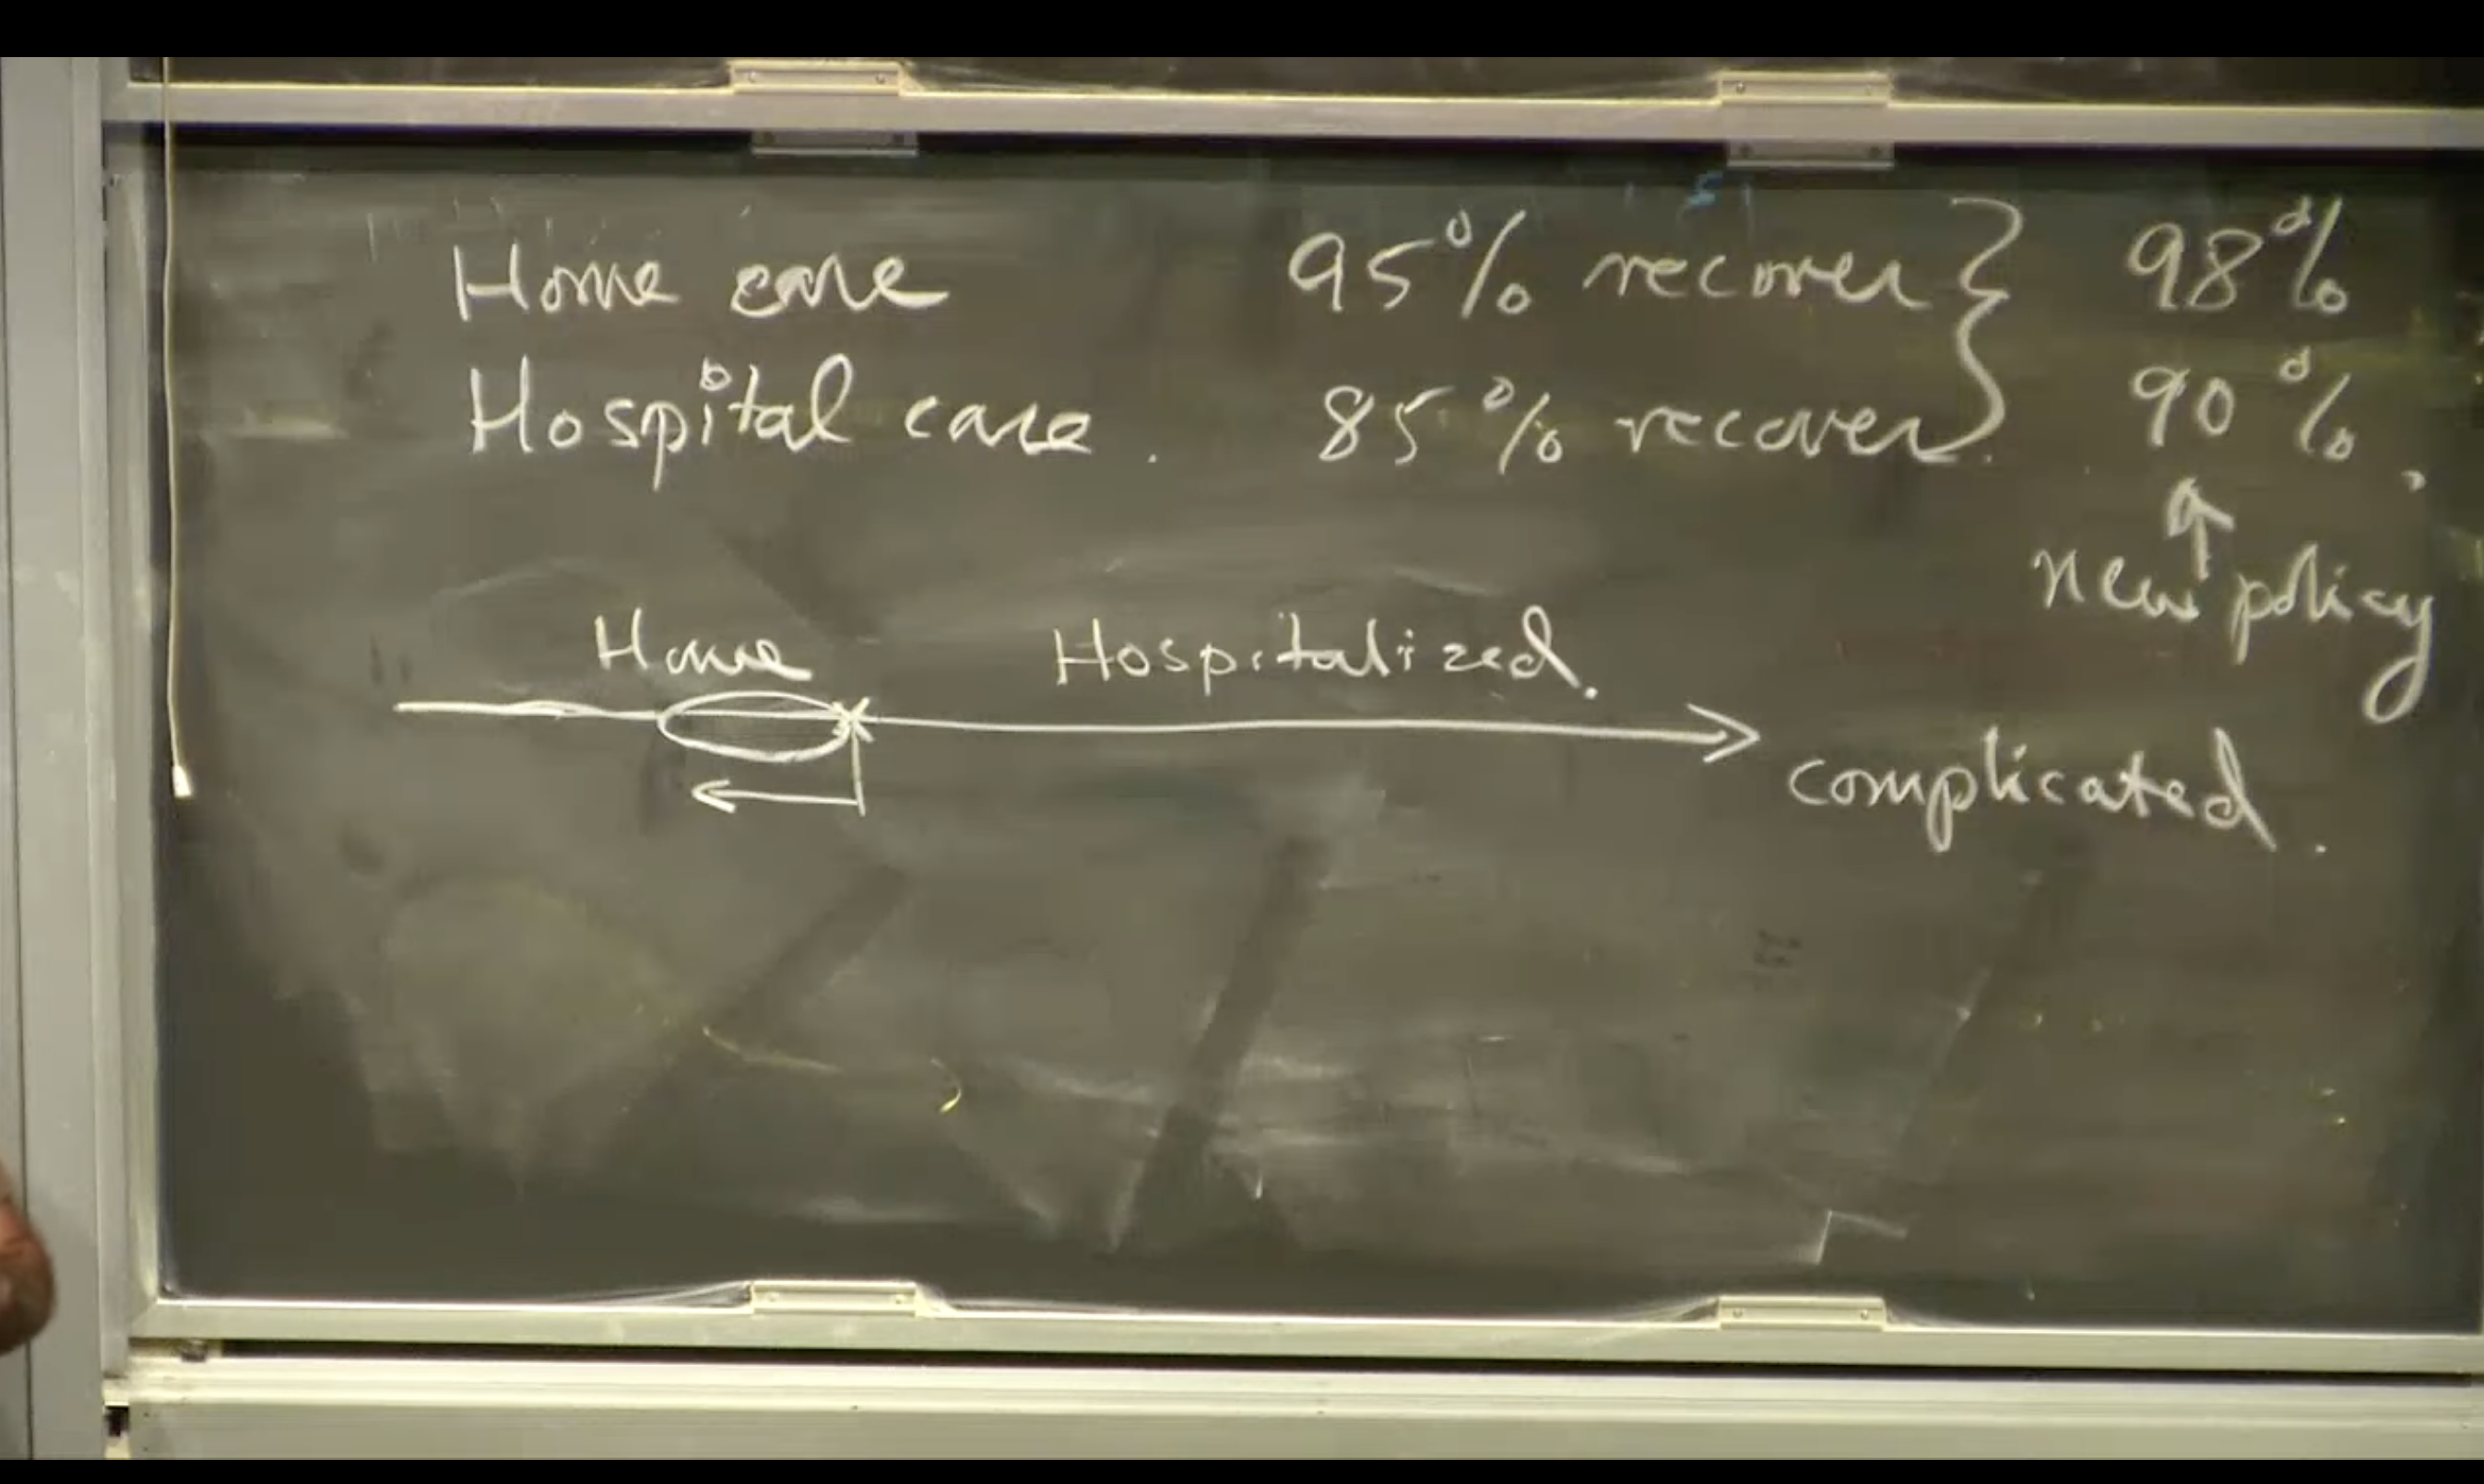 Home care 95% recover } 98%
Hospital care. 85% recover. 90%.
↑
new policy
Home Hospitalized.
complicated.